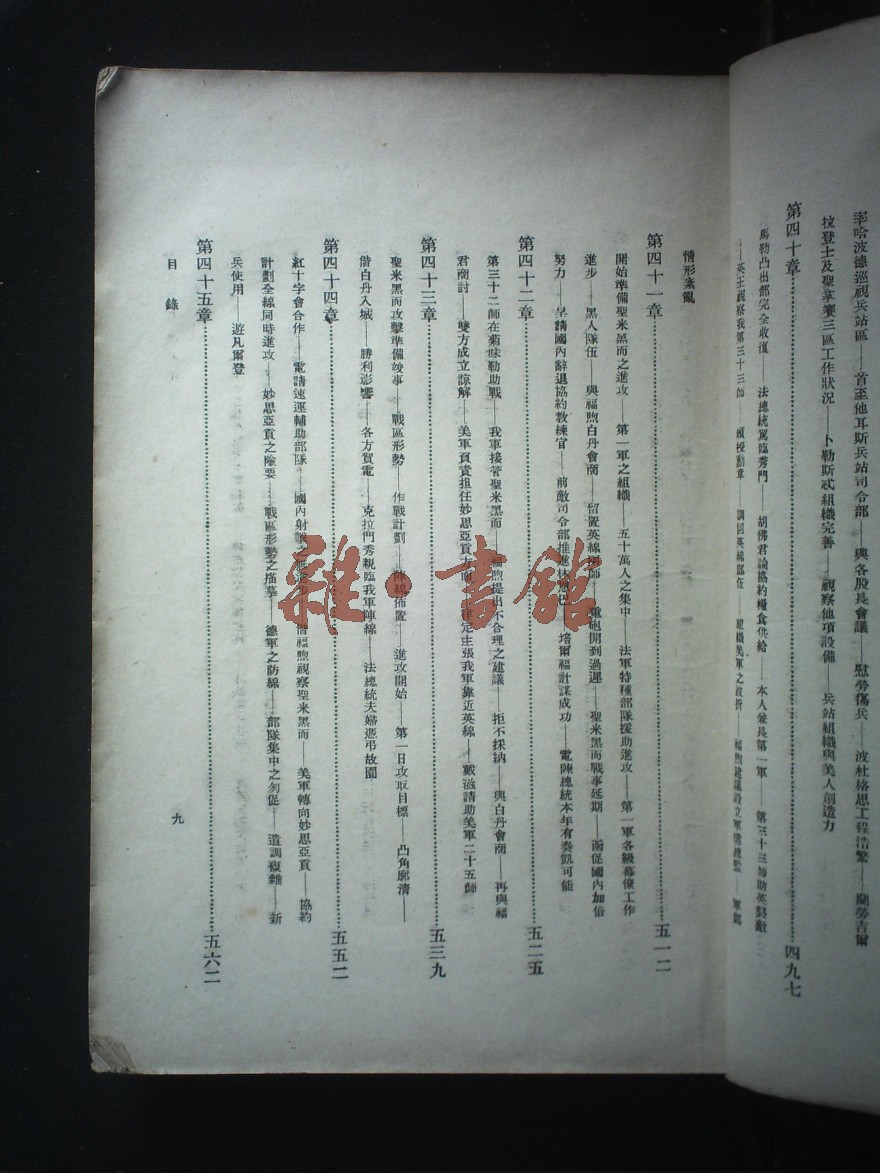 李哈波德巡視兵站區——首至他耳斯兵站司令部——與各股長會議——慰勞傷兵——波杜格思工程浩繁——蘭勞吉爾
拉登士及聖拿賽三區工作狀況——卜勒斯忒組織完善——視察他項設備——兵站組織與美人創造力
第四十章 四九七
馬勒凸出部完全收復——法總統駕臨秀門——胡佛君論協約糧食供給——本人兼長第一軍——第三十三師助英
英王視察我第三十三師——頒授勳章——調回英線部伍——組織美軍之波折——福煦建議設立軍
情形紊亂
第四十一章 五一二
開始準備聖米黑而之進攻——第一軍之組織——五十萬人之集中——法軍特種部隊援助進攻——第一軍各級幕僚工作
進步——黑人隊伍——與福煦白丹會商——留置英線 師——重砲開到過遲——聖米黑而戰事延期——函促國內加倍
努力——呈請國內辭退協約教練官——前敵司令部推進 ——培爾福計謀成功——電陳總統本年有奏凱可能
第四十二章 五二五
第三十二師在菊味勒助戰——我軍接管聖米黑而——福煦提出不合理之建議——拒不採納——與白丹會商——再與福
君商討——雙方成立諒解——美軍負責担任妙思亞貢方面—— 定主張我軍靠近英線——戴滋請助美軍二十五師
第四十三章 五三九
聖米黑而攻擊準備竣事——戰區形勢——作戰計劃——陣線佈置——進攻開始——第一日攻取目標——凸角廓清——
偕白丹入城——勝利影響——各方賀電——克拉門秀親臨我軍陣線——法總統夫婦憑弔故園
第四十四章 五五二
紅十字會合作——電請速運輔助部隊——國內射 之 ——偕福煦視察聖米黑而——美軍轉向妙思亞貢——協約
計劃全線同時進攻——妙思亞貢之險要——戰區形勢之描摹——德軍之防線——部隊集中之匆促——遣調複雜——新
兵使用——遊凡爾登
第四十五章 五六二
目錄
九
雜·書館